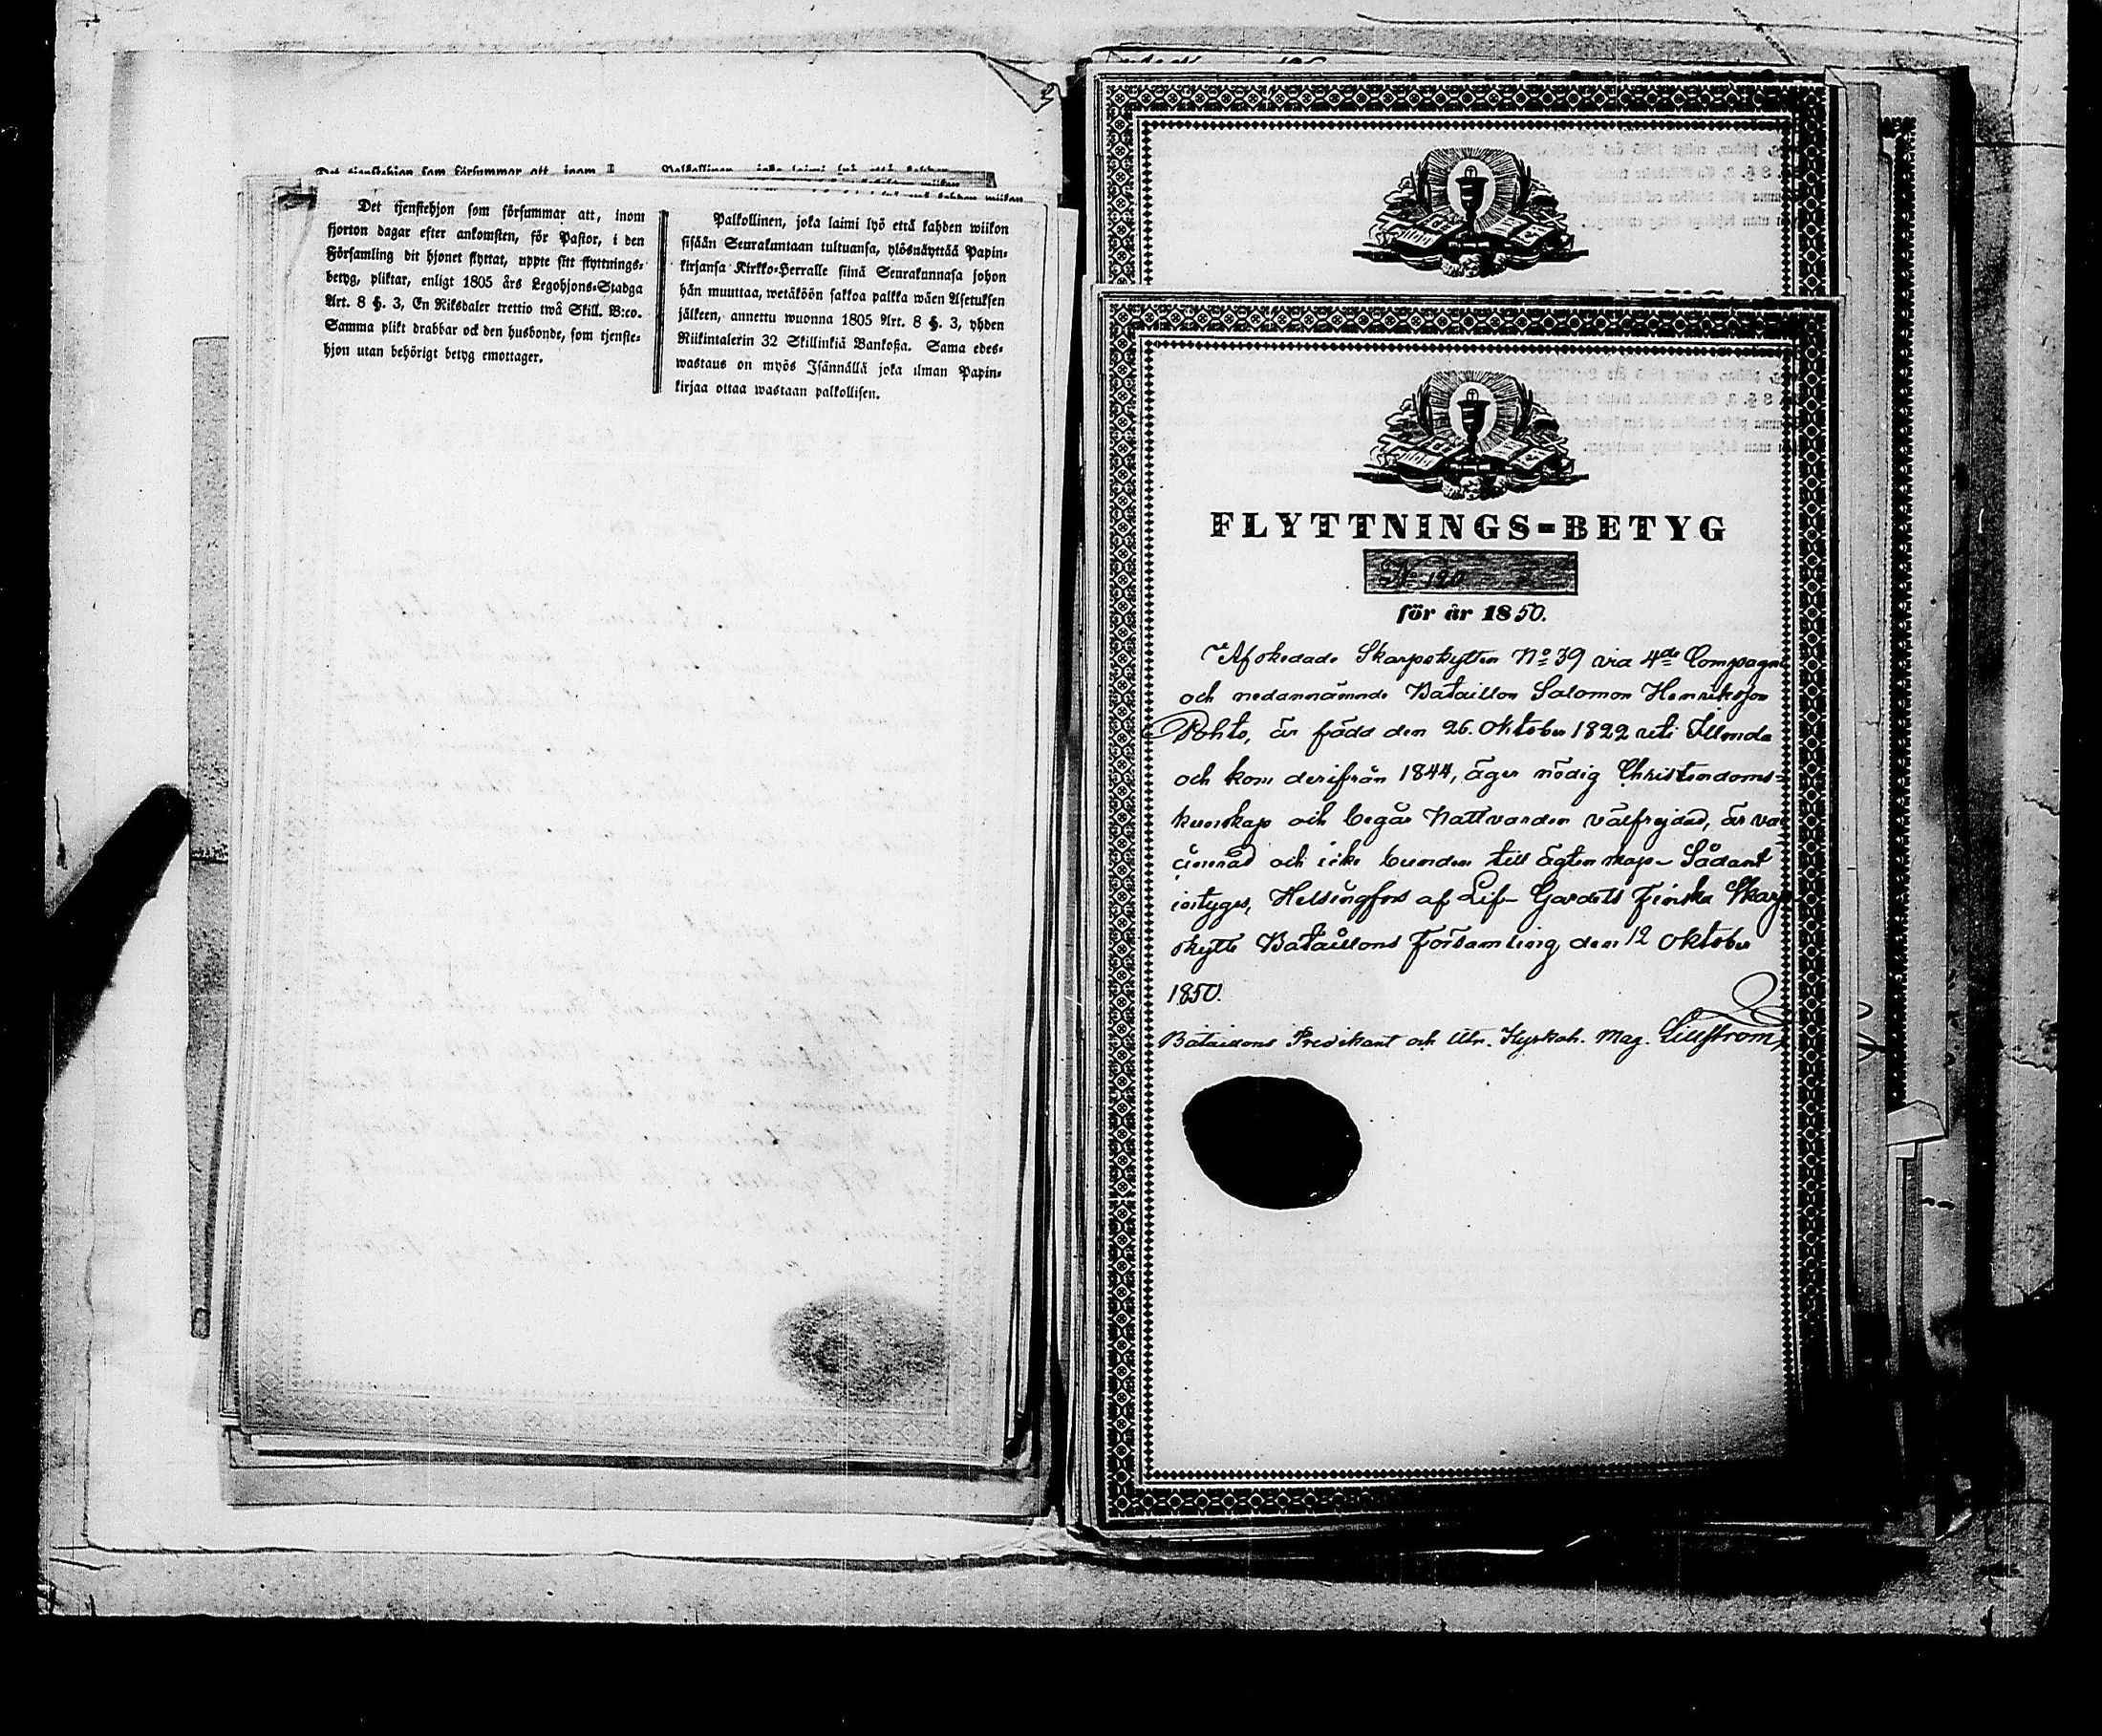 Det tjenstehjon som försummar att, inom
fjorton dagar efter ankomsten, för Pastor, i den
Församling dit hjonet flyttat, uppte sitt flyttnings-
betyg, pliktar, enligt 1805 års Legohjons-Stadga
Art. 8 §. 3, En Riksdaler trettio twå Skill. B:co.
Samma plikt drabbar ock den husbonde, som tjenste-
hjon utan behörigt betyg emottager.
Palkollinen, joka laimi lyö että kahden wiikon
sisään Seurakuntaan tultuansa, ylösnäyttää Papin-
kirjansa Kirkko-Herralle siinä Seurakunnasa johon
hän muuttaa, wetäköön sakkoa palkka wäen Asetuksen
jälkeen, annettu wuonna 1805 Art. 8 §. 3, yhden
Riikintalerin 32 Skillinkiä Bankosa. Sama edes-
wastaus on myös Isännällä joka ilman Papin-
kirjaa ottaa wastaan palkollisen.
FLYTTNINGS-BETYG
No 120
för år 1850.
Afskedade Skarpskytten No 39 vid 4de Compagni
och nedannämnde Bataillon Salomon Henriksson
Pohto, är född den 26. Oktober 1822 uti Ilmola
och kom derifrån 1844, äger nödig Christendoms-
kunskap och begår Nattvarden välfrejdad, är vac
cinerad och icke bunden till ägtenskap- Sådant
intygas, Helsingfors af Lif- Gardets Finska Skarp-
skytte Bataillons Församling, den 12 Oktober
1850.
Bataillons Predikant och Utn. Kyrkoh. Mag. Lillström